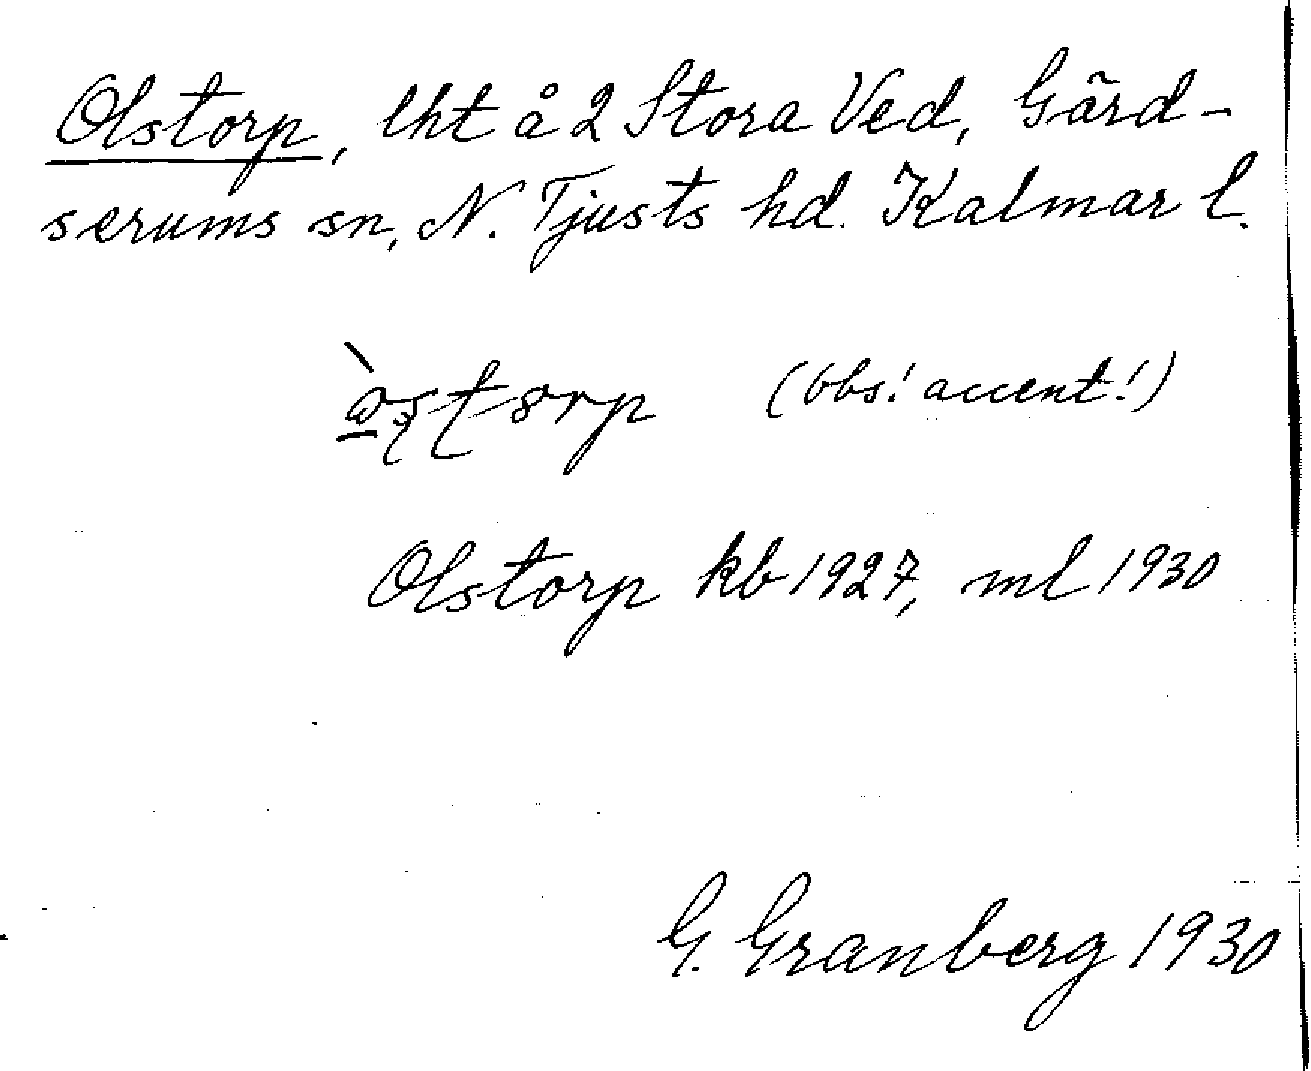 Olstorp, lht å 2 Stora Ved, Gärd-
serums sn, N. Tjusts hd. Kalmar l.
(obs! accent!)
Olstorp kb 1927, ml 1930
G. Granberg 1930